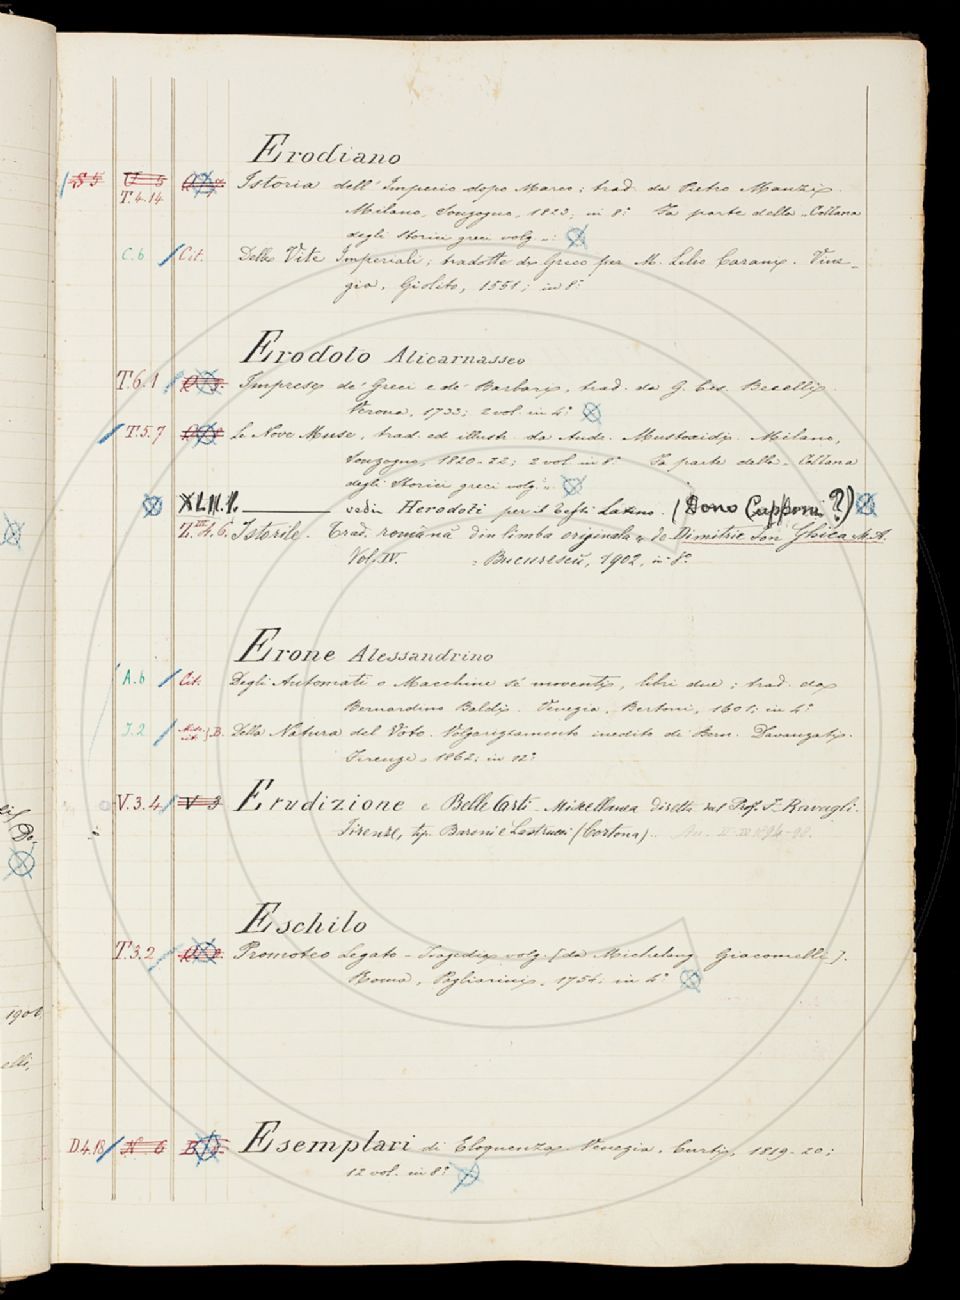 Erodiano
S 5 V 5 Istoria dell' Imperio dopo Marco; trad. da Pietro Manzi.
T.4.14 Milano, Sonzogno, 1823; in 8° Fa parte della "Collana
degli storici greci volg.":
C.b Cit. Delle Vite Imperiali; tradotte dal Greco per M. Lelio Carani. Vine-
gia, Giolito, 1551; in 8°
Erodoto Alicarnasseo
T.6.1 Imprese de' Greci e de' Barbari, trad. da G. Ces. Becelli.
Verona, 1733; 2 vol. in 4°
T.5.7 Le Nove Muse, trad. ed illustr. da Andr. Mustoxidi. Milano,
Sonzogno, 1820-22; 2 vol. in 8° Fa parte della "Collana
degli Storici greci volg.".
XLII.1. vedi Herodoti per il testo Latino. (Dono Capponi?)
Z.III.4.6. Istorile. Trad. română din limba originala de Dimitrie Ion Ghica M.A.
Vol. IV. Bucuresci, 1902, in 8°
Erone Alessandrino
A.b Cit. Degli Automati o Macchine se moventi, libri due; trad. da
Bernardino Baldi. Venezia, Bertoni, 1601; in 4°
I.2 B. Della Natura del Voto. Volgarizzamento inedito di Bern. Davanzati.
Firenze, 1862; in 12°
V.3.4 V 3 Erudizione e Belle Arti. Miscellanea diretta dal Prof. F. Ravagli.
Firenze, tip. Baroni e Lastrucci (Cortona). An. 1894-98.
Eschilo
T.3.2 Prometeo Legato - Tragedia volg. [da Michelang. Giacomelli].
Roma, Pagliarini, 1754; in 4°
D.4.18 N 6 Esemplari di Eloquenza. Venezia, Curti, 1819-20;
12 vol. in 8°
1901
elli,